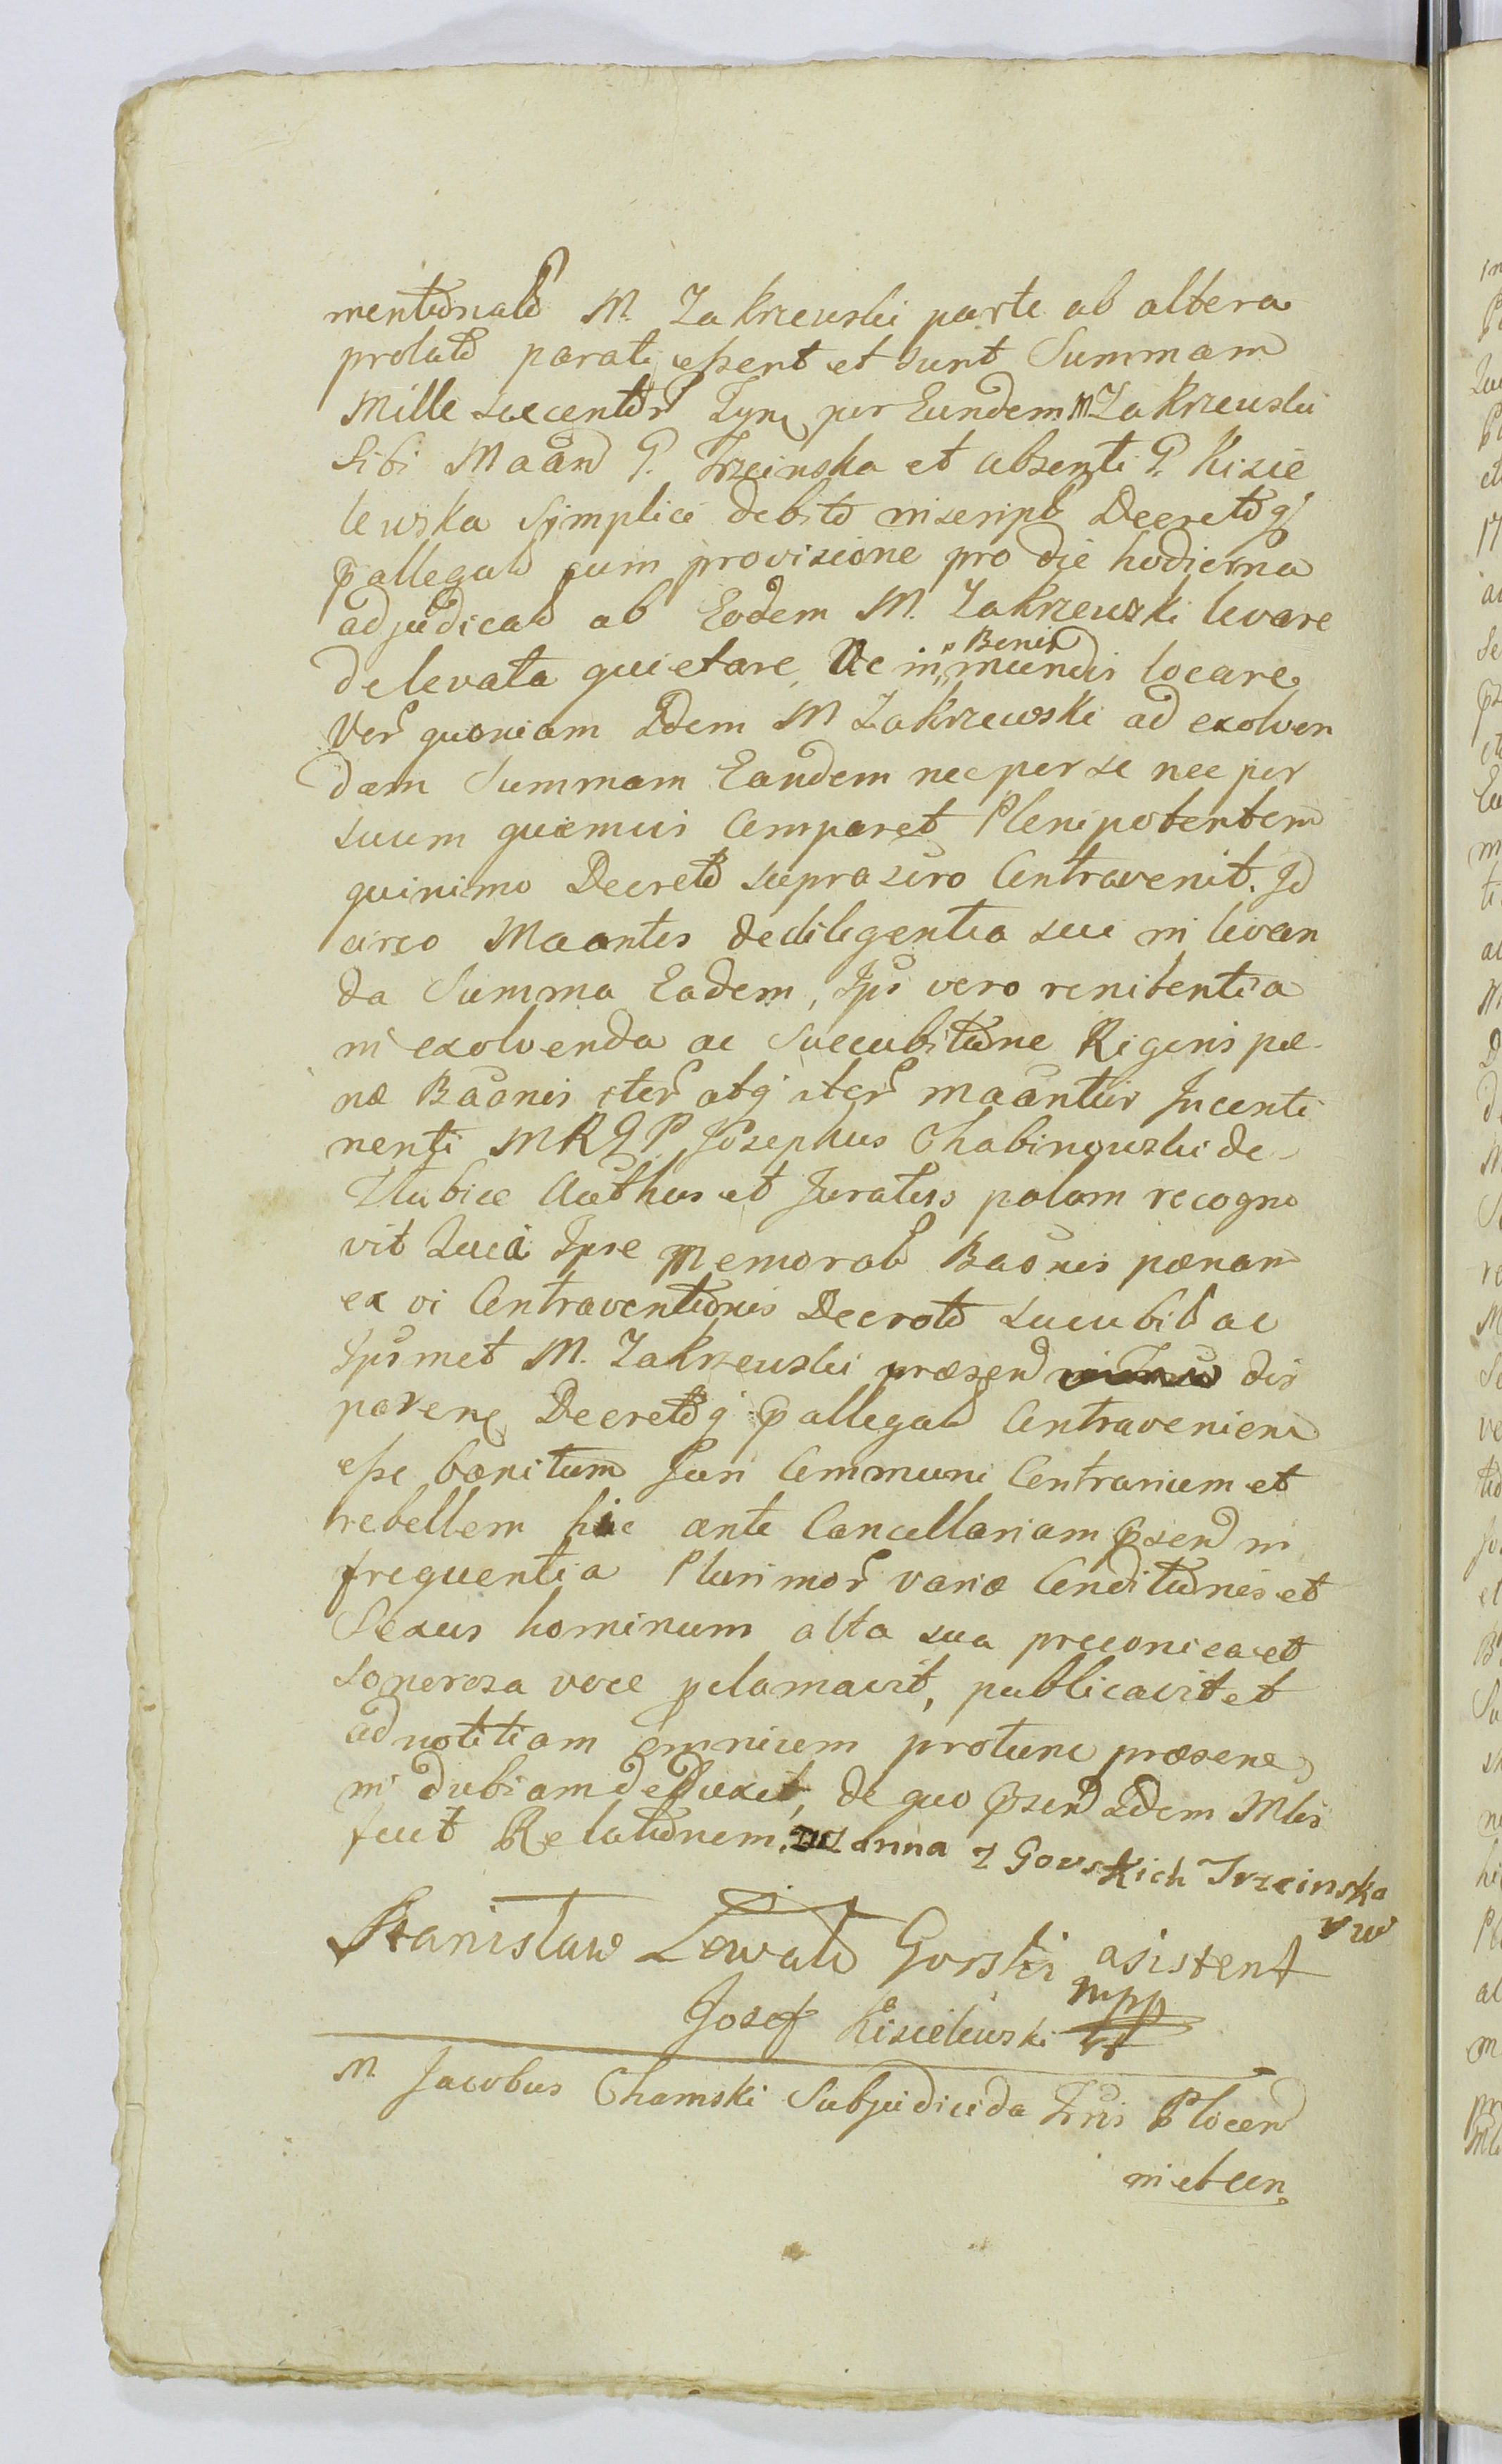 mentionato M. Zakrzewski parte ab altera
prolato parati essent et sunt Summam
Mille sexcentor Tynf per Eundem M Zakrzewski
Sibi Maan G. Trzcinska et absenti G. Kisie
lewska Symplici debito inscript Decretoq
pallegato cum provisione pro die hodierna
adjudicat ab Eodem M. Zakrzewski levare
de levata quietare, Ac in Benis mundis locare
Ver quoniam Idem M Zakrzewski ad exolven
dam Summam Eandem nec per se nec per
suum quemvis Comparet Plenipotentem
quinimo Decreto supra scro Contravenit. Id
circo Maantes de diligentia sui in levan
da Summa Eadem, Ips vero renitentia
in exolvenda ac Succubitione Rigoris pæ
næ Baonis iter atq iter maantur Inconti
nenti MRGP Josephus Chabinowski de
Słubice Authus et Juratus palam recogno
vit Quia Ipse Memorat Baonis pænam
ex vi Contraventionis Decreto sucubit ac
Ipsmet M. Zakrzewski præsend dis
paren Decretoq pallegato Contravenien
esse banitum Juri Communi Contrarium et
rebellem hic ante Cancellariam psend in
frequentia Plurimor variæ Conditionis et
Sexus hominum alta sua preconica et
sonorosa voce pclamavit, publicavit et
ad notitiam omnium protunc præsen
indubiam deduxit, de quo psend Idem Mlis
fecit Relationem. Anna z Gorskich Trzcinska
vw
Stanisław Lewald Gorski asistent
mpp
Josef Kisielewski
M. Jacobus Chamski Subjudicida Tris Plocen